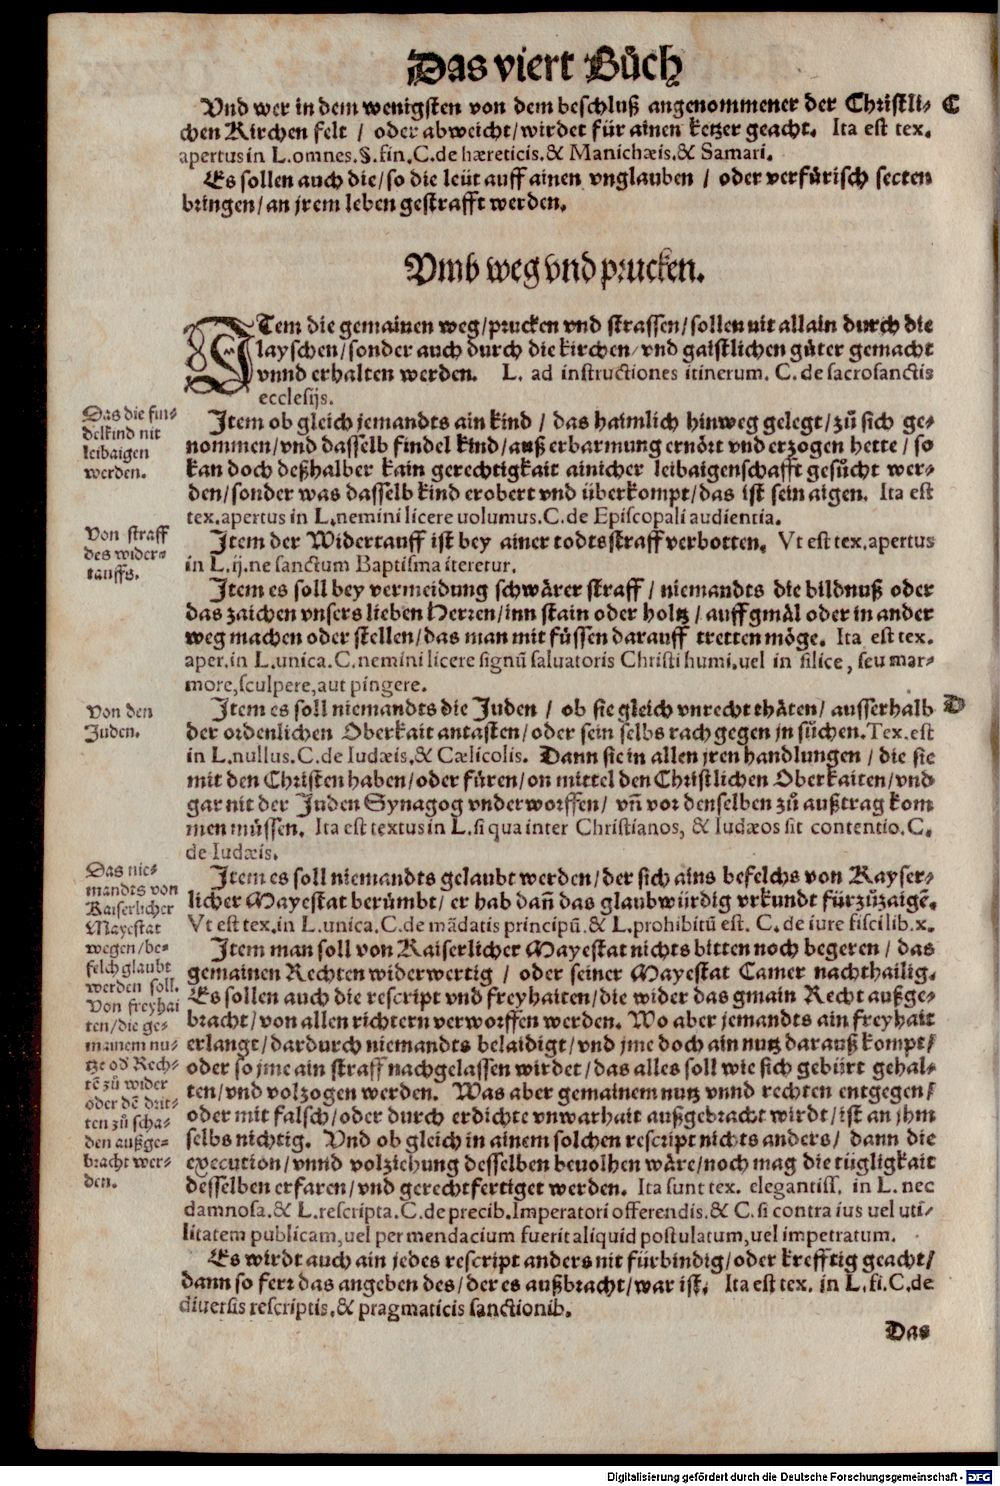 Das viert Bůch
Vnd wer in dem wenigsten von dem beschluß angenommener der Christli- C
chen Kirchen felt / oder abweicht / wirdet für ainen ketzer geacht. Ita est tex.
apertus in L. omnes. §. fin. C. de hæreticis. & Manichæis. & Samari.
Es sollen auch die / so die leüt auff ainen vnglauben / oder verfürisch secten
bringen / an jrem leben gestrafft werden.
Vmb weg vnd prucken.
ITem die gemainen weg / prucken vnd strassen / sollen nit allain durch die
layschen / sonder auch durch die kirchen / vnd gaistlichen güter gemacht
vnnd erhalten werden. L. ad instructiones itinerum. C. de sacrosanctis
ecclesijs.
Das die fin-
delkind nit
leibaigen
werden.
Item ob gleich jemandts ain kind / das haimlich hinweg gelegt / zů sich ge-
nommen / vnd dasselb findel kind / auß erbarmung ernört vnd erzogen hette / so
kan doch deßhalber kain gerechtigkait ainicher leibaigenschafft gesůcht wer-
den / sonder was dasselb kind erobert vnd überkompt / das ist sein aigen. Ita est
tex. apertus in L. nemini licere uolumus. C. de Episcopali audientia.
Von straff
des wider-
tauffs.
Item der Widertauff ist bey ainer todtsstraff verbotten. Vt est tex. apertus
in L. ij. ne sanctum Baptisma iteretur.
Item es soll bey vermeidung schwärer straff / niemandts die bildnuß oder
das zaichen vnsers lieben Herren / inn stain oder holtz / auff gmäl oder in ander
weg machen oder stellen / das man mit füssen darauff tretten möge. Ita est tex.
aper. in L. unica. C. nemini licere signū saluatoris Christi humi. uel in silice, seu mar-
more, sculpere, aut pingere.
Von den
Juden.
Item es soll niemandts die Juden / ob sie gleich vnrecht thäten / ausserhalb D
der ordenlichen Oberkait antasten / oder sein selbs rach gegen jn sůchen. Tex. est
in L. nullus. C. de Iudæis. & Cælicolis. Dann sie in allen jren handlungen / die sie
mit den Christen haben / oder füren / on mittel den Christlichen Oberkaiten / vnd
gar nit der Juden Synagog vnderworffen / vñ vor denselben zů außtrag kom
men müssen. Ita est textus in L. si qua inter Christianos, & Iudæos sit contentio. C.
de Iudæis.
Das nie-
mandts von
Kaiserlicher
Mayestat
wegen / be-
felch glaubt
werden soll.
Item es soll niemandts gelaubt werden / der sich ains befelchs von Kayser-
licher Mayestat berümbt / er hab dañ das glaubwürdig vrkundt fürzůzaigē.
Vt est tex. in L. unica. C. de mādatis principū. & L. prohibitū est. C. de iure fiscilib. x.
Von freyhai
ten / die ge-
mainem nu-
tze od Rech-
tē zů wider
oder dē drit-
ten zů scha-
den außge-
bracht wer-
den.
Item man soll von Kaiserlicher Mayestat nichts bitten noch begeren / das
gemainen Rechten widerwertig / oder seiner Mayestat Camer nachthailig.
Es sollen auch die rescript vnd freyhaiten / die wider das gmain Recht außge-
bracht / von allen richtern verworffen werden. Wo aber jemandts ain freyhait
erlangt / dardurch niemandts belaidigt / vnd jme doch ain nutz darauß kompt /
oder so jme ain straff nachgelassen wirdet / das alles soll wie sich gebürt gehal-
ten / vnd volzogen werden. Was aber gemainem nutz vnnd rechten entgegen /
oder mit falsch / oder durch erdichte vnwarhait außgebracht wirdt / ist an jhm
selbs nichtig. Vnd ob gleich in ainem solchen rescript nichts anders / dann die
execution / vnnd volziehung desselben beuolhen wäre / noch mag die tügligkait
desselben erfaren / vnd gerechtfertiget werden. Ita sunt tex. elegantiss. in L. nec
damnosa. & L. rescripta. C. de precib. Imperatori offerendis. & C. si contra ius uel uti-
litatem publicam, uel per mendacium fuerit aliquid postulatum, uel impetratum.
Es wirdt auch ain jedes rescript anders nit fürbindig / oder krefftig geacht /
dann so ferr das angeben des / der es außbracht / war ist. Ita est tex. in L. fi. C. de
diuersis rescriptis. & pragmaticis sanctionib.
Das
Digitalisierung gefördert durch die Deutsche Forschungsgemeinschaft - DFG